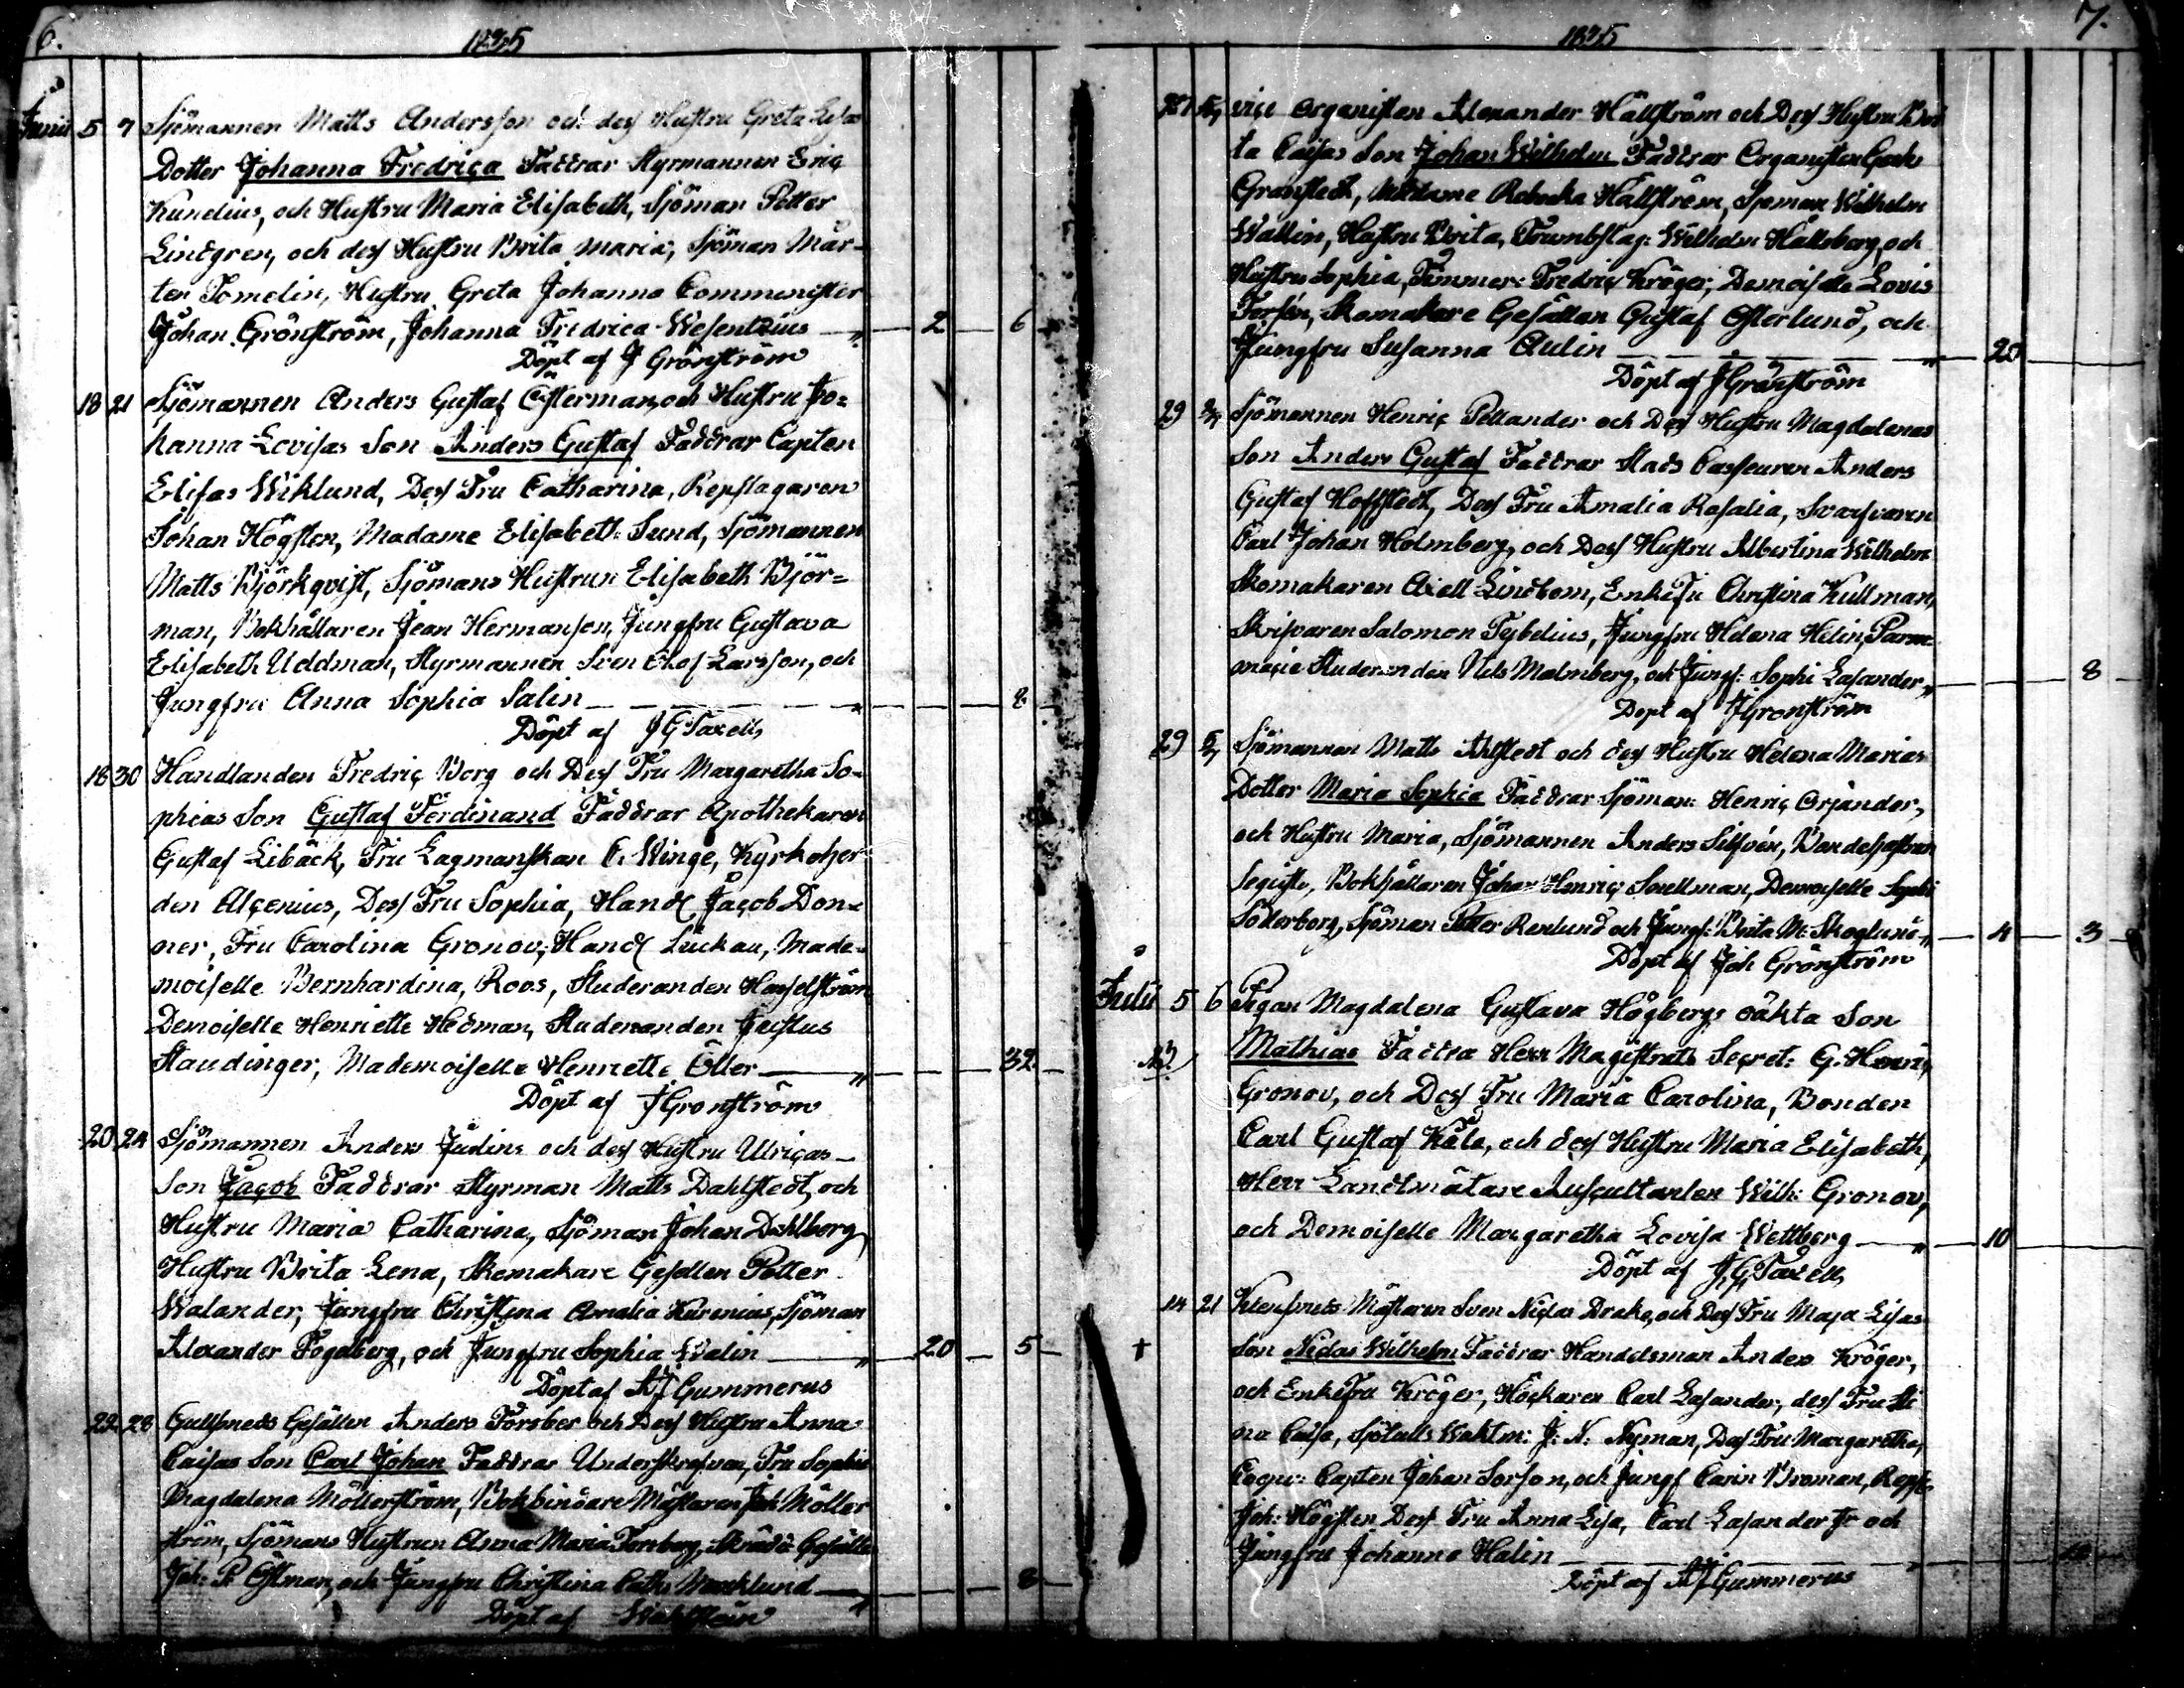 6.
1835
Junii 5 7 Sjömannen Matts Andersson och dess Hustru Greta Lisas
Dotter Johanna Fredrica Faddrar Styrmannen Eric
Kunelius, och Hustru Maria Elisabeth, Sjöman Petter
Lindgren, och dess Hustru Brita Maria, Sjöman Mår-
ten Tomelin, Hustru Greta Johanna Comminister
Johan Grönström, Johanna Fredrica Wesentzius — „ — 2 — 6
Döpt af J Grönström
18 21 Sjömannen Anders Gustaf Österman, och Hustru Jo=
hanna Lovisas Son Anders Gustaf Faddrar Capten
Elisas Wiklund, Dess Fru Catharina, Repslagaren
Johan Högsten, Madame Elisabeth Sund, Sjömannen
Matts Björkqvist, Sjömans Hustrun Elisabeth Björ=
man, Bokhållaren Jean Hermanson, Jungfru Gustava
Elisabeth Uddman, Styrmannen Sven Olof Larsson, och
Jungfru Anna Sophia Salin — „ — 8
Döpt af J G Taxell
18 30 Handlanden Fredric Borg och Dess Fru Margaretha So-
phias Son Gustaf Ferdinand Faddrar Apothekaren
Gustaf Libäck, Fru Lagmanskan C. Winge, Kyrkoher-
den Alcenius, Dess Fru Sophia, Handl Jacob Don-
ner, Fru Carolina Gronov, Handl Luckau, Made-
moiselle Bernhardina Roos, Studeranden Hasselström
Demoiselle Henriette Hedman, Studeranden Justus
Staudinger, Mademoiselle Henriette Öller — „ — 32.
Döpt af J Gronström
20 24 Sjömannen Anders Judins och dess Hustru Ulricas
Son Jacob Faddrar Styrman Matts Dahlstedt, och
Hustru Maria Catharina, Sjöman Johan Dahlberg
Hustru Brita Lena, Skomakare Gesellen Petter
Walander, Jungfru Christina Amalia Kurenius, Sjöman
Alexander Fogelberg, och Jungfru Sophia Walin — „ — 20 — 5
Döpt af A J Gummerus
22 28 Gullsmeds Gesällen Anders Forsber och Dess Hustru Anna
Caisas Son Carl Johan Faddrar Fru Sophia
Magdalena Möllerström, Bokbindare Mästaren Joh Möller
ström, Sjömans Hustrun Anna Maria Forsberg, Gesälle
Joh: P. Östman, och Jungfru Christina Cath: Marklund — „ — 8
Döpt af
7.
1835
vice Organisten Alexander Hällström och Dess Hustru Bri
ta Caisas Son Johan Wilhelm Faddrar Organisten
Granstedt, Madame Rebecka Hällström, Sjöman Wilhelm
Wallin, Hustru Brita, Trumbslag: Wilhelm Hällsberg, och
Hustru Sophia, Timmer: Fredric Kröger, Demoiselle Lovis
Forsén, Skomakare Gesällen Gustaf Österlund, och
Jungfru Susanna Aulin — „ — 20
Döpt af J Grönström
29 Sjömannen Henric Pellander och Dess Hustru Magdalenas
Son Anders Gustaf Faddrar Stads Casseuren Anders
Gustaf Hoffstedt, Dess Fru Amalia Rosalia, Svarfvaren
Carl Johan Holmberg, och Dess Hustru Albertina Wilhelm
Skomakaren Axell Lindbom, EnkeFru Christina Kullman,
Skrifvaren Salomon Sybelius, Jungfru Helena Helin, Parma
macie Studeranden Nils Malmberg, och Jungf: Sophi Lasander „ — 8
Döpt af J Gronström
29 Sjömannen Matts Ahlstedt och dess Hustru Helena Marias
Dotter Maria Sophia Faddrar Sjöman: Henric Orjander,
och Hustru Maria, Sjömannen Anders Silfvén, Bondehustrun
Bokhållaren Johan Henric Snellman, Demoiselle Sophi
Söderborg, Sjöman Petter Renlund och Jungf: Brita M: Skoglund „ — 4 — 3
Döpt af Joh Grönström
Julii 5 6 Pigan Magdalena Gustava Högbergs oäkta Son
Mathias Faddra Herr Magistrats Secret: G. Henric
Gronov, och Dess Fru Maria Carolina, Bonden
Carl Gustaf Kåla, och dess Hustru Maria Elisabeth,
Herr Landtmätare Auscultanten Wilh: Gronov,
och Demoiselle Margaretha Lovisa Wettberg — „ — 10
Döpt af J. G. Taxell
14 21 Klensmeds Mästaren Sven Niclas Drake, och Dess Fru Maja Lisas
† Son Niclas Wilhelm Faddrar Handelsman Anders Kröger,
och EnkeFru Kröger, Höckaren Carl Lasander, dess Fru Sti
na Caisa, Sjötulls Waktm: J: N: Nyman, Dess Fru Margaretha,
Capten Johan Sorson, och Jungf Carin Broman, Reps
Joh: Högsten Dess Fru Anna Lisa, Carl Lasander Jr och
Jungfru Johanna Halin — „
Döpt af A J Gummerus